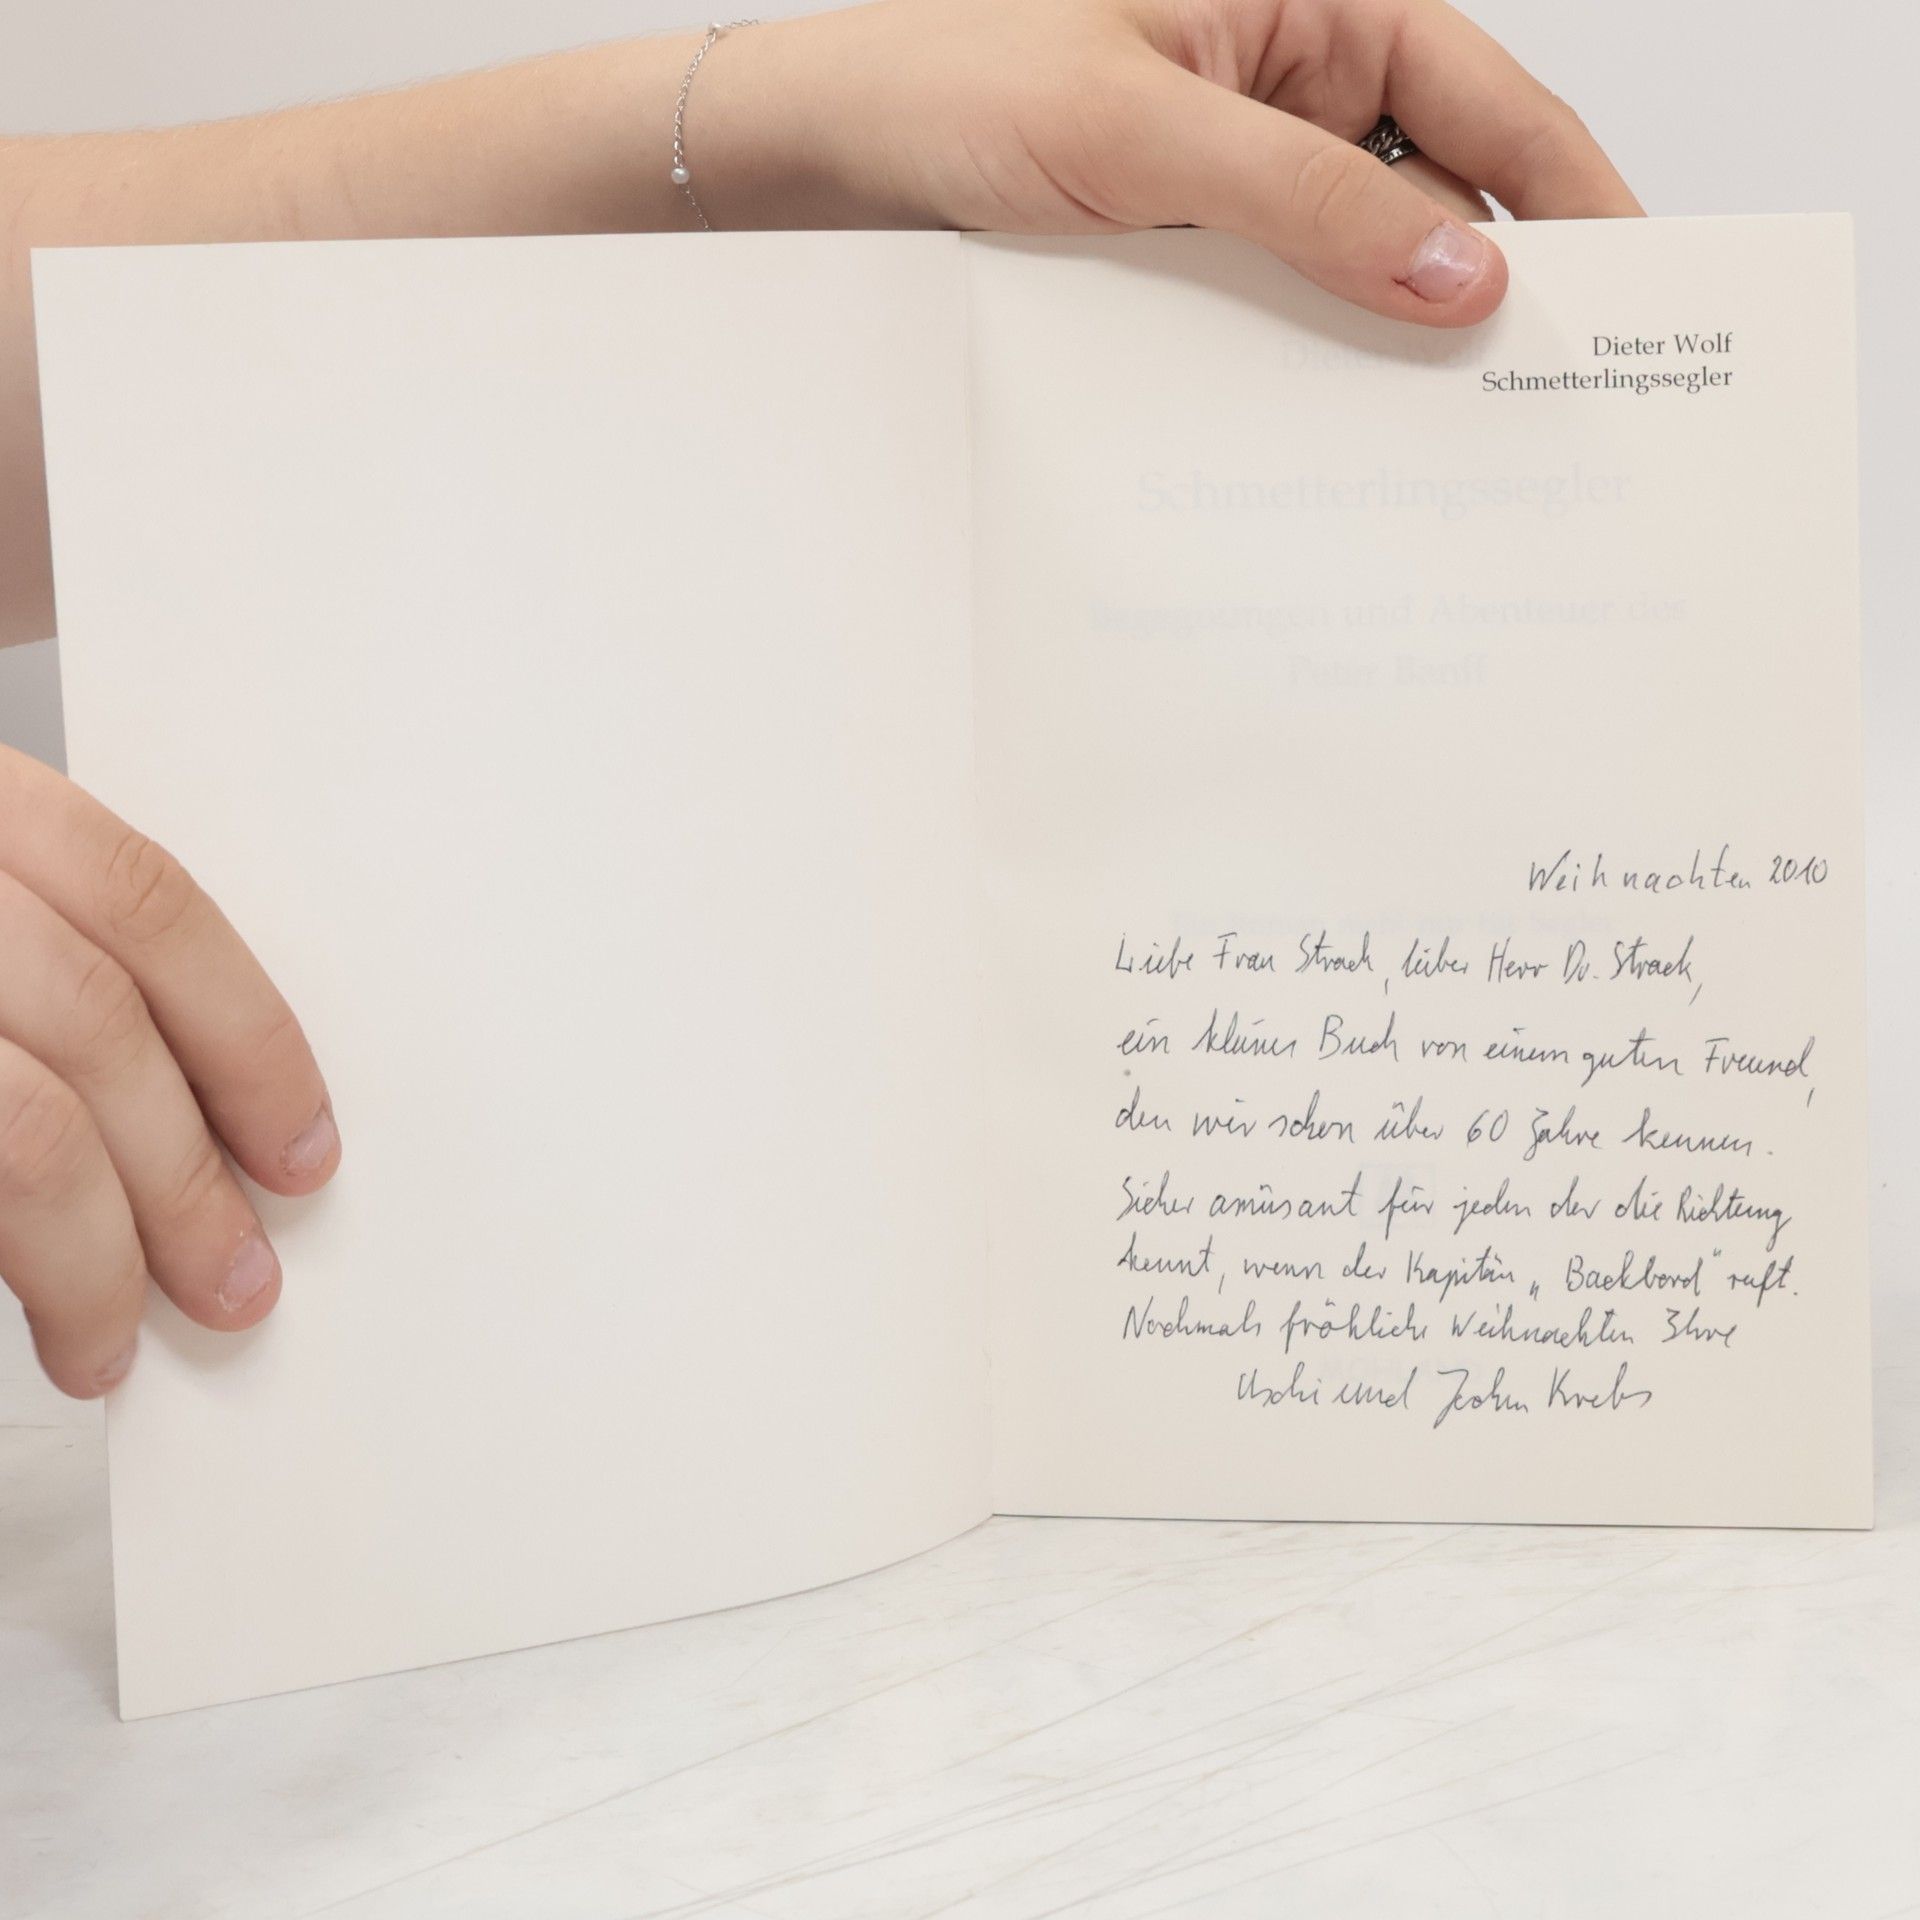 Dieter Wolf
Schmetterlingssegler
Schmetterlingssegler
Begegnungen und Abenteuer des
Peter Banff
Weihnachten 2010
Liebe Frau Strack, lieber Herr Dr. Strack,
ein kleines Buch von einem guten Freund,
den wir schon über 60 Jahre kennen.
Sicher amüsant für jeden der die Richtung
kennt, wenn der Kapitän „Backbord" ruft.
Nochmals fröhliche Weihnachten Ihre
Uschi und Krebs